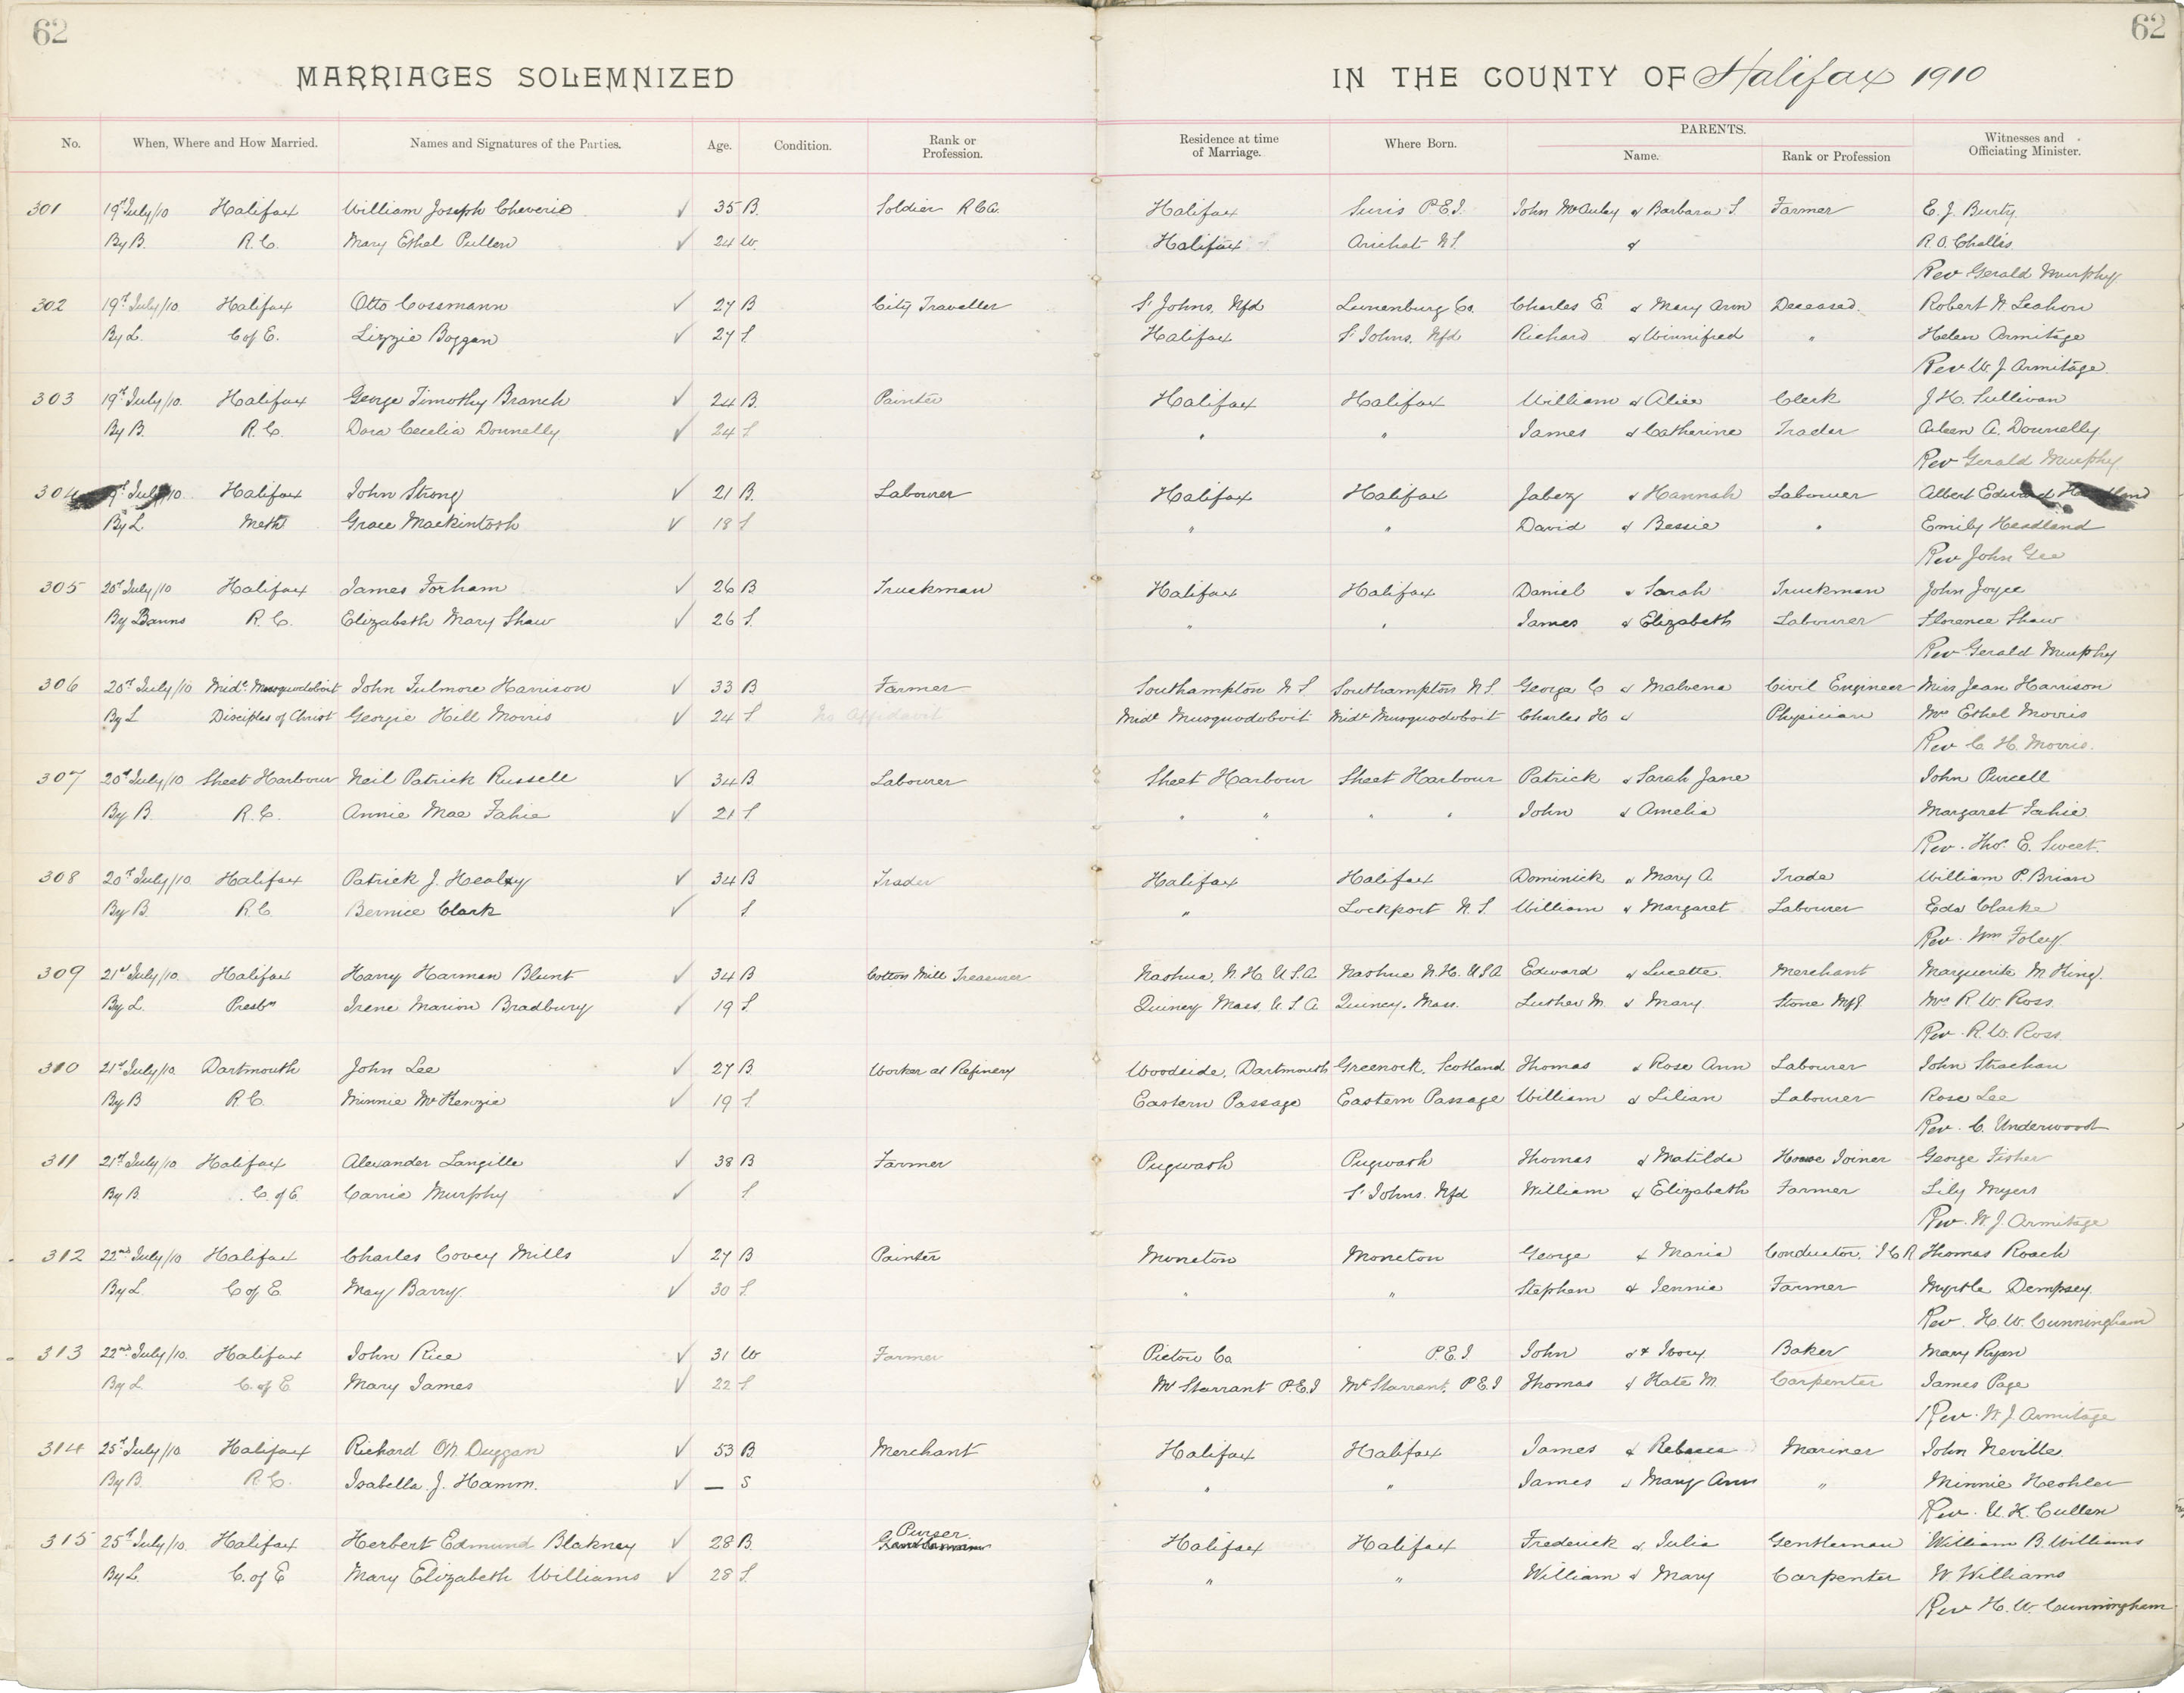 62 62
MARRIAGES SOLEMNIZED IN THE COUNTY OF Halifax 1910
No. When, Where and How Married. Names and Signatures of the Parties. Age. Condition. Rank or Profession. Residence at time of Marriage. Where Born. PARENTS. Name. Rank or Profession Witnesses and Officiating Minister.
301 19th July/10 Halifax William Joseph Cheverie ✓ 35 B. Soldier RCA. Halifax Suris P.E.I. John McAulay & Barbara S. Farmer E. J. Burty
By B. R.C. Mary Ethel Pullen ✓ 24 W. Halifax Arichat N.S. & R.O. Challis
Rev Gerald Murphy
302 19th July/10 Halifax Otto Cossmann ✓ 27 B City Traveller St Johns, Nfd Lunenburg Co. Charles E. & Mary Ann Deceased Robert N. Leahon
By L. C of E. Lizzie Boggan ✓ 27 S Halifax St Johns, Nfd Richard & Winnifred " Helen Armitage
Rev W. J Armitage
303 19th July/10 Halifax George Timothy Branch ✓ 24 B. Painter Halifax Halifax William & Alice Clerk J. H. Sullivan
By B. R.C. Dora Cecelia Donnelly ✓ 24 S " " James & Catherine Trader Aileen A. Donnelly
Rev Gerald Murphy
304 July/10. Halifax John Strong ✓ 21 B. Labourer Halifax Halifax Jabez & Hannah Labourer Albert Edward
By L Meth Grace Mackintosh ✓ 18 S " " David & Bessie " Emily Headland
Rev John Gee
305 20th July/10 Halifax James Forham ✓ 26 B Truckman Halifax Halifax Daniel & Sarah Truckman John Joyce
By Banns R.C. Elizabeth Mary Shaw ✓ 26 S. " " James & Elizabeth Labourer Florence Shaw
Rev Gerald Murphy
306 20th July/10 Midle Musquodoboit John Fulmore Harrison ✓ 33 B Farmer Southampton N.S. Southampton N.S. George C & Malvena Civil Engineer Miss Jean Harrison
By L Disciples of Christ Georgie Hill Morris ✓ 24 S No Affidavit Midle Musquodoboit Midle Musquodoboit Charles H & Physician Mrs Ethel Morris
Rev C. H. Morris.
307 20th July/10 Sheet Harbour Neil Patrick Russell ✓ 34 B. Labourer Sheet Harbour Sheet Harbour Patrick & Sarah Jane John Purcell
By B. R.C. Annie Mae Fahie ✓ 21 S " " " " John & Amelia Margaret Fahie
Rev. Thos. E. Sweet.
308 20th July/10 Halifax Patrick J. Healey ✓ 34 B Trader Halifax Halifax Dominick & Mary A. Trade William P. Brian
By B. R.C. Bernice Clark ✓ S " Lockport N.S. William & Margaret Labourer Eda Clarke
Rev. Wm Foley
309 21st July/10 Halifax Harry Harman Blunt ✓ 34 B Cotton Mill Treasurer Nashua, N.H. U.S.A. Nashua N.H. USA Edward & Lucette Merchant Marguerite M King.
By L. Presbn Irene Marion Bradbury ✓ 19 S. Quincy Mass. U.S.A Quincy. Mass. Luther M. & Mary Stone Mfr Mrs R. W. Ross.
Rev. R. W. Ross.
310 21st July/10. Dartmouth John Lee ✓ 27 B. Worker at Refinery Woodside, Dartmouth Greenock, Scotland Thomas & Rose Ann Labourer John Strachan
By B R.C. Minnie McKenzie ✓ 19 S. Eastern Passage Eastern Passage William & Lilian Labourer Rose Lee
Rev. C. Underwood
311 21st July/10 Halifax Alexander Langille ✓ 38 B Farmer Pugwash Pugwash Thomas & Matilda House Joiner George Fisher
By B. C. of E. Carrie Murphy ✓ S St Johns. Nfd William & Elizabeth Farmer Lily Myers
Rev. W. J. Armitage
312 22nd July/10 Halifax Charles Covey Mills ✓ 27 B Painter Moncton Moncton George & Maria Conductor, ICR Thomas Roach
By L. C of E. May Barry ✓ 30 S. " " Stephen & Jennie Farmer Myrtle Dempsey
Rev. H. W. Cunningham
313 22nd July/10. Halifax John Rice ✓ 31 W Farmer Pictou Co P.E.I John & Ivory Baker Mary Ryan
By L. C. of E Mary James ✓ 22 S Mt Starrant P.E.I Mt Starrant, P.E.I Thomas & Kate M. Carpenter James Page
Rev. W. J Armitage
314 25th July/10 Halifax Richard ON. Duggan ✓ 53 B. Merchant Halifax Halifax James & Rebecca Mariner John Neville
By B. R.C. Isabella J. Hamm. ✓ — S " " James & Mary Ann " Minnie Hechler
Rev. U. K. Cullen
315 25th July/10. Halifax Herbert Edmund Blakney ✓ 28 B. Purser Halifax Halifax Frederick & Julia Gentleman William B. Williams
By L. C. of E Mary Elizabeth Williams ✓ 28 S. " " William & Mary Carpenter W Williams
Rev H. W. Cunningham